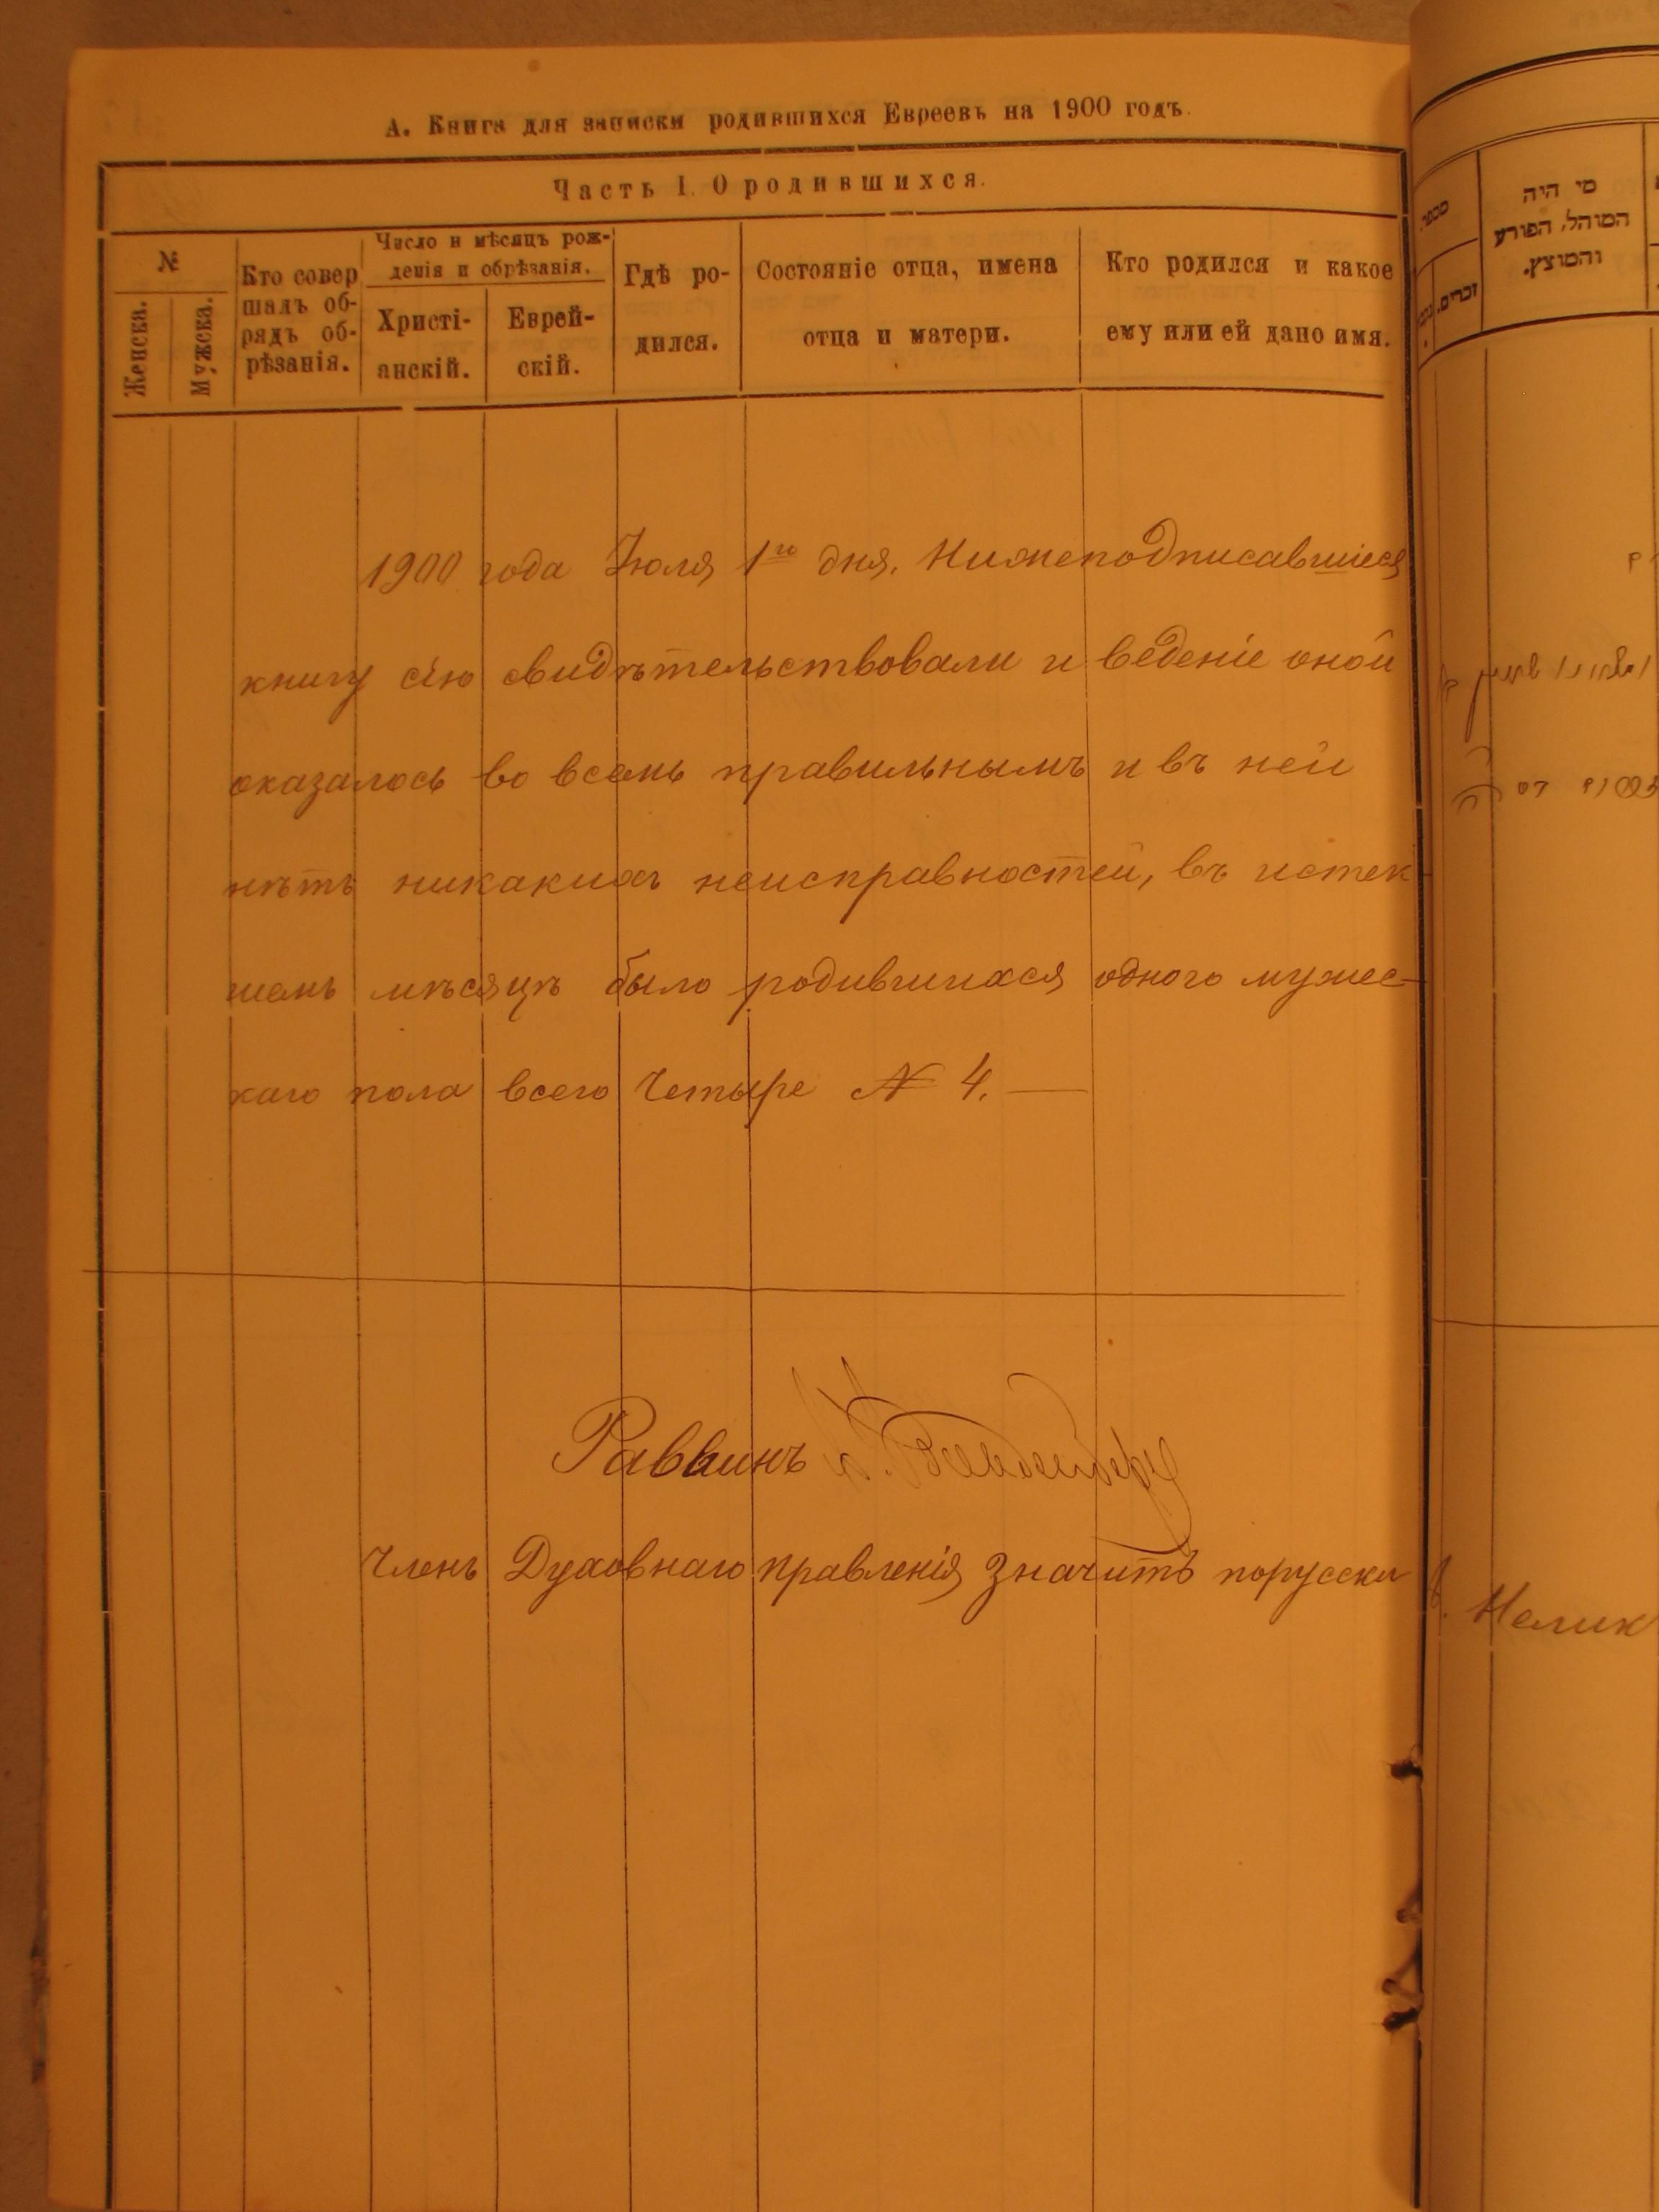 А. Книга для записки родившихся Евреевъ на 1900 годъ.
Часть I. О родившихся.
№
Женска.
Мужска.
Кто совер
шалъ об-
рядъ об-
рѣзанія.
Число и мѣсяцъ рож-
денія и обрѣзанія.
Христі-
анскій.
Еврей-
скій.
Гдѣ ро-
дился.
Состояніе отца, имена
отца и матери.
Кто родился и какое
ему или ей дано имя.
1900 года Іюля 1го дня. Нижеподписавшіеся
книгу сію свидѣтельствовали и веденіе оной
оказалось во всемъ правильнымъ и въ ней
нѣтъ никакихъ неисправностей, въ истек-
шемъ мѣсяцѣ было родившихся одного мужес-
каго пола всего Четыре № 4. —
Раввинъ
Членъ Духовнаго правленія Значитъ порусски
מספר
זכרים.
מי היה
המוהל, הפורע
והמוצץ.